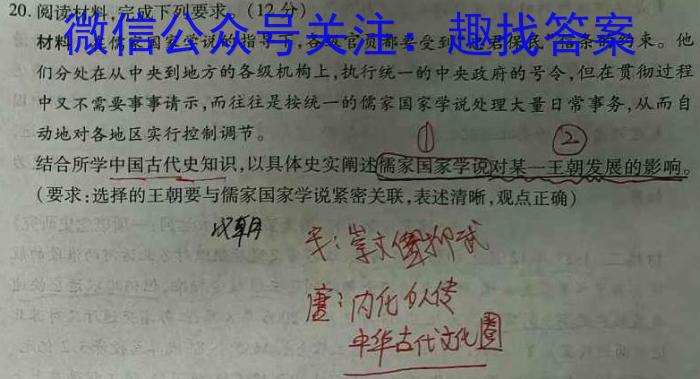 20. 阅读材料,完成下列要求。(12分)
微信公众号关注:趣找答案
材料 在儒家国家学说的指导下,各级官员都要受到忠君保民 信条的约束。他
们分处在从中央到地方的各级机构上,执行统一的中央政府的号令,但在贯彻过程
中又不需要事事请示,而往往是按统一的儒家国家学说处理大量日常事务,从而自
动地对各地区实行控制调节。
① ②
结合所学中国古代史知识,以具体史实阐述儒家国家学说对某一王朝发展的影响。
(要求:选择的王朝要与儒家国家学说紧密关联,表述清晰,观点正确)
汉朝 宋:崇文抑武
唐:内化外传
中华古代文化圈